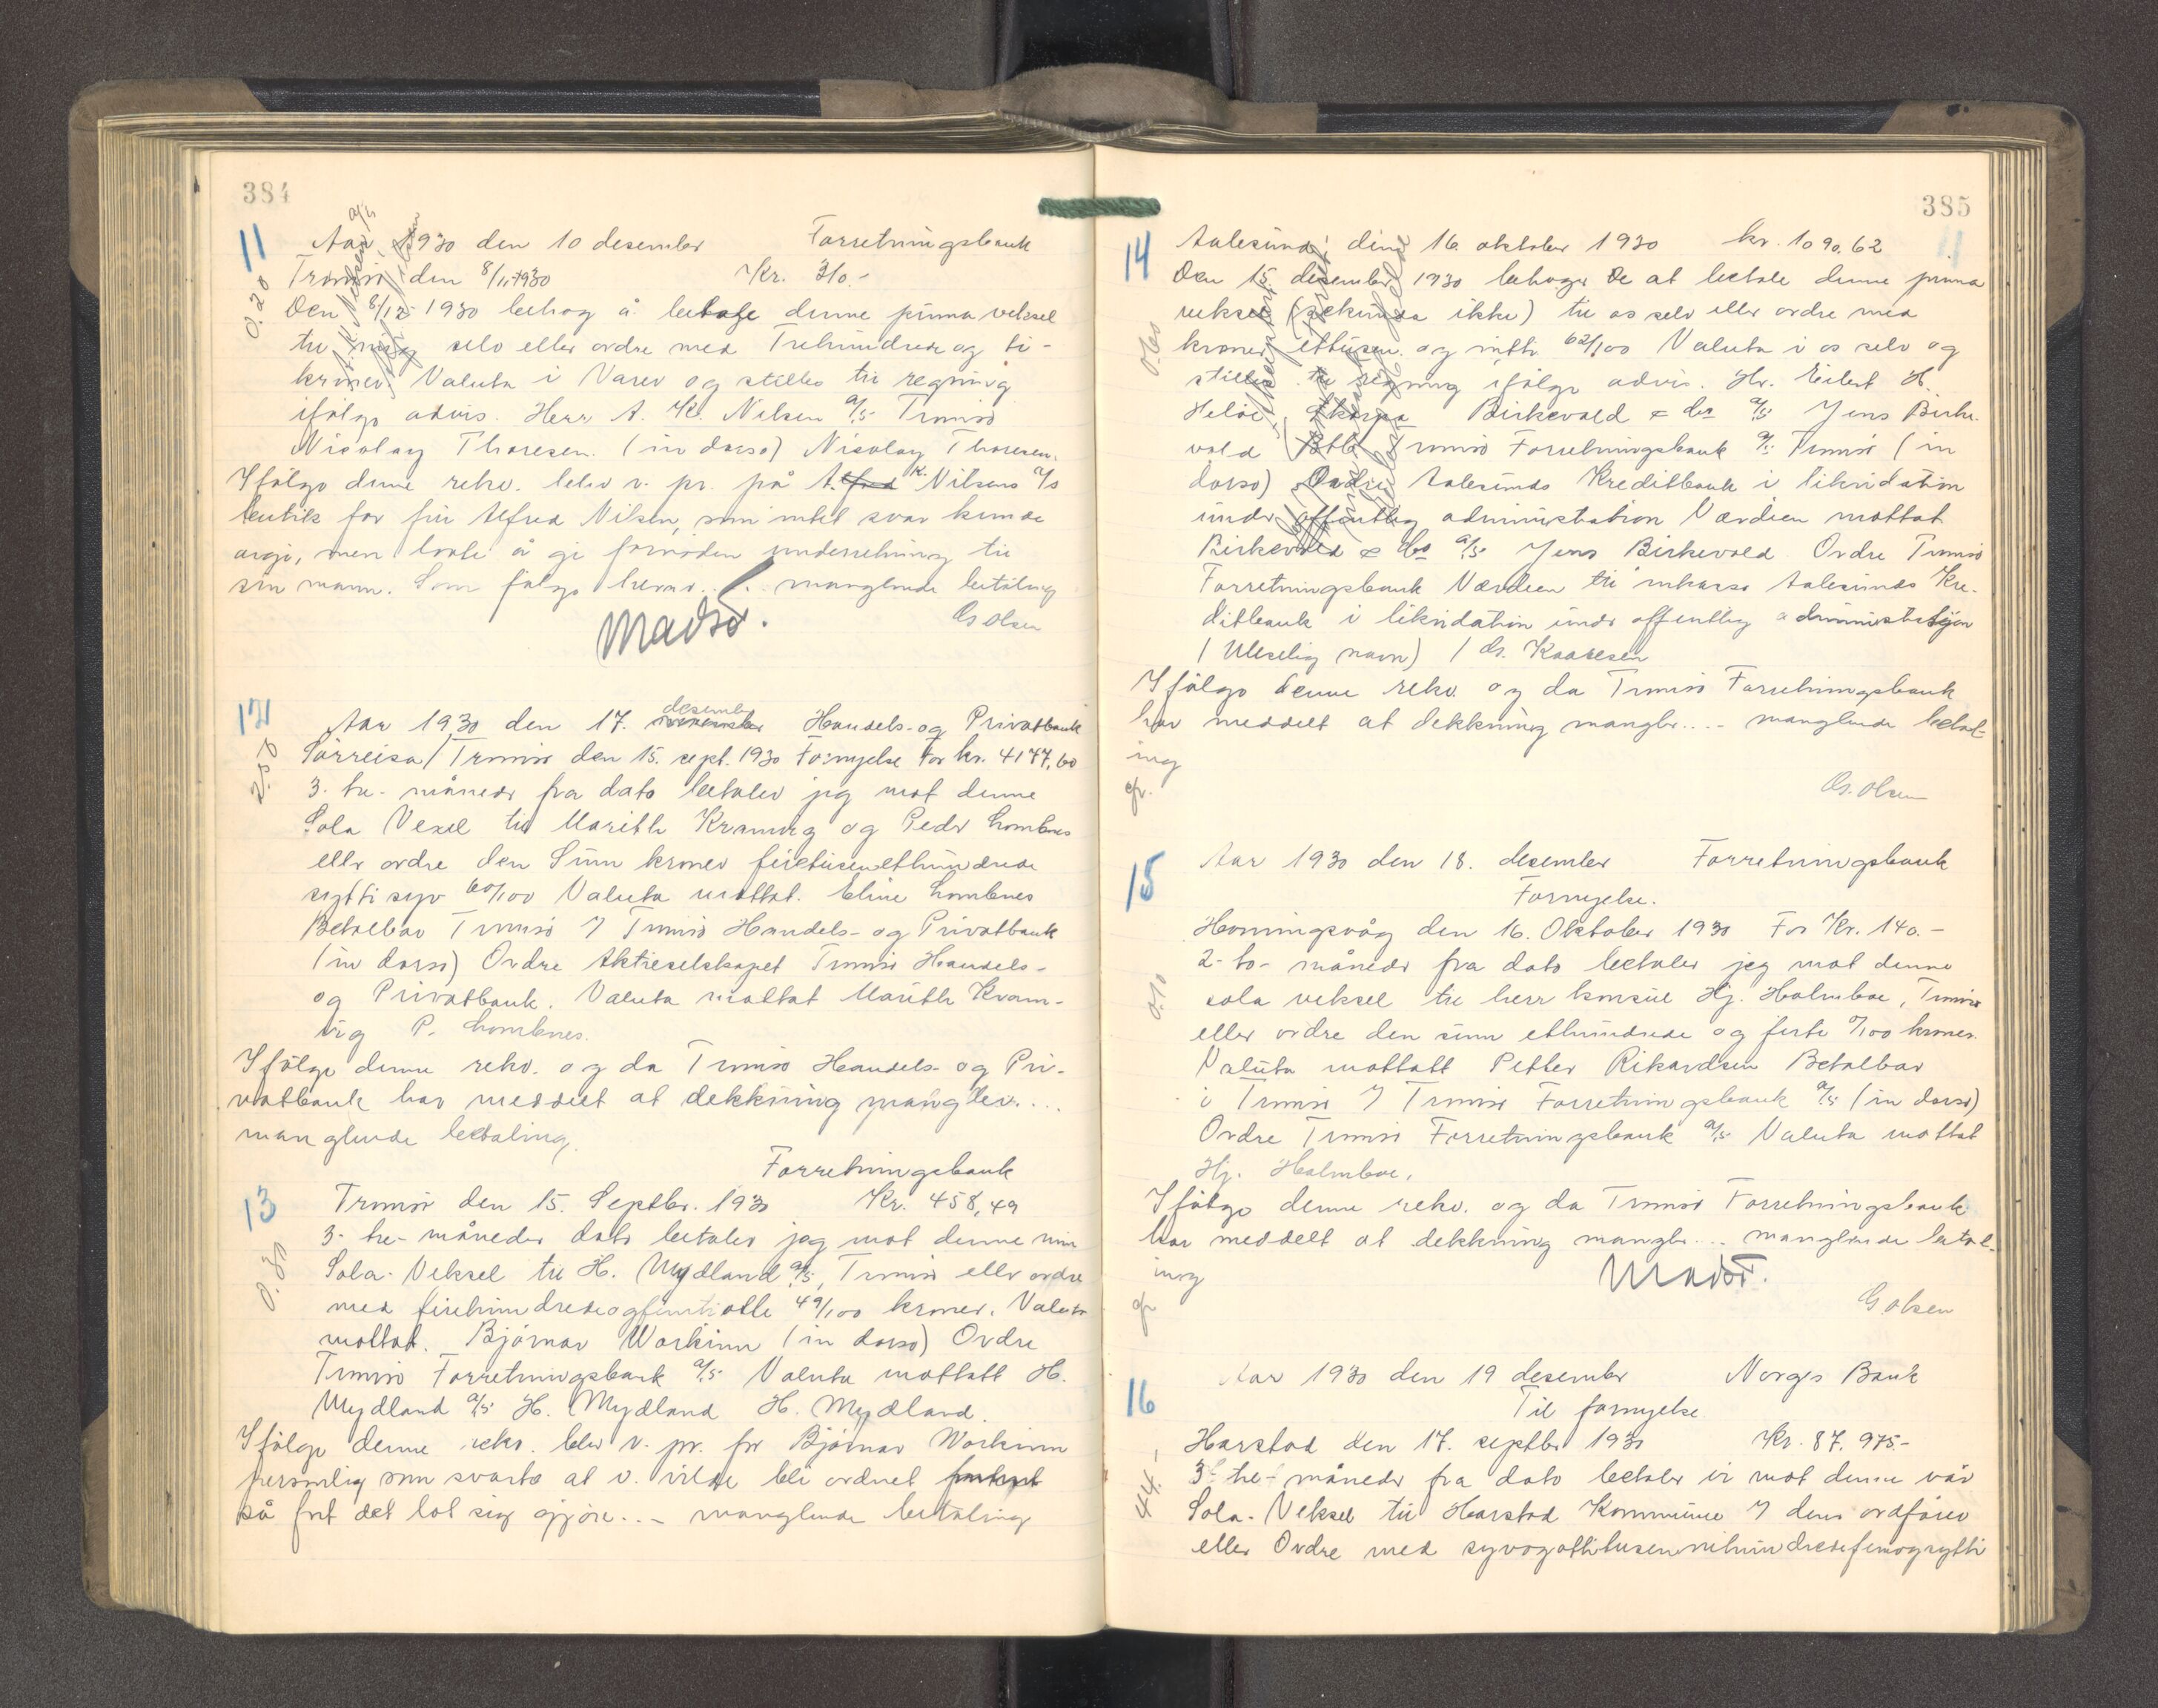 384
11
0.20
Aar 1930 den 10 desember Forretningsbank
Tromsö den 8/11 1930 Kr. 310.-
Den 8/12 1930 behag å betale denne prima veksel
til mig selv eller ordre med Trehundrede og ti-
kroner. Valuta i Varer og stilles til regning
ifölge advis. Herr A. K. Nilsen A/S Tromsö
Nicolay Thoresen. (in dorso) Nicolay Thoresen.
Ifölge denne rekv. blev v. pr. på A. K. Nilsens A/S
butik for fru Alfred Nilsen, som intet svar kunde
avgi, men lovte å gi fornöden underretning til
sin mann. Som fölge herav ... manglende betaling
Madsö. G. Olsen
12
2.50
Aar 1930 den 17. desember Handels- og Privatbank
Sörreisa/Tromsö den 15. sept. 1930 Fornyelse For kr. 4177,60
3- tre- måneder fra dato betaler jeg mot denne
Sola Vexel til Marith Kramvig og Peder Lombnes
eller ordre den Sum kroner firetusenethundrede
sytti syv 60/100 Valuta mottat. Eline Lombnes
Betalbar Tromsö I Tromsö Handels- og Privatbank
(in dorso) Ordre Aktieselskapet Tromsö Handels-
og Privatbank. Valuta mottat Marith Kram-
vig P. Lombnes.
Ifölge denne rekv. og da Tromsö Handels- og Pri-
vatbank har meddelt at dekkning mangler. ...
manglende betaling.
Forretningsbank
13
0.30
Tromsö den 15. Septbr. 1930 Kr. 458,49
3- tre- måneder dato betaler jeg mot denne min
Sola- Veksel til H. Mydland A/S, Tromsö eller ordre
med firehundredeogfemtiotte 49/100 kroner. Valuta
mottat. Björnar Workinn (in dorso) Ordre
Tromsö Forretningsbank A/S Valuta mottatt H.
Mydland A/S H. Mydland H. Mydland.
Ifölge denne rekv. blev v. pr. for Björnar Workinn
personlig som svarte at v. vilde bli ordnet
så fort det lot sig gjöre... - manglende betaling
385
11
14
0.60
Aalesund den 16 oktober 1930 kr. 1090,62
Den 15. desember 1930 behager De at betale denne prima
veksel (sekunda ikke) til os selv eller ordre med
kroner ettusen og nitti 62/100 Valuta i os selv og
stilles til regning ifölge advis. Hr. Eilert H.
Helöe, Skarpa Birkevold & Co A/S Jens Birke-
vold Btlb Tromsö Forretningsbank A/S Tromsö (in
dorso) Ordre Aalesunds Kreditbank i likvidation
under offentlig administration Værdien mottat
Birkevold & Co A/S Jens Birkevold Ordre Tromsö
Forretningsbank Værdien til inkasso Aalesunds Kre-
ditbank i likvidation under offentlig administrasjon
(Uleselig navn) / G. Kaaresen
Ifölge denne rekv. og da Tromsö Forretningsbank
har meddelt at dekkning mangler.... - manglende betal-
ing
G. Olsen
15
0.10
Aar 1930 den 18. desember Forretningsbank
Fornyelse.
Honningsvåg den 16. Oktober 1930 For Kr. 140.-
2- to- måneder fra dato betaler jeg mot denne
sola veksel til herr konsul Hj. Holmboe, Tromsö
eller ordre den sum ethundrede og firti 0/100 kroner.
Valuta mottatt Petter Rikardsen Betalbar
i Tromsö I Tromsö Forretningsbank A/S (in dorso)
Ordre Tromsö Forretningsbank A/S Valuta mottat
Hj. Holmboe.
Ifölge denne rekv. og da Tromsö Forretningsbank
har meddelt at dekkning mangler ... manglende betal-
ing
Madsö. G. Olsen
16
44.-
Aar 1930 den 19 desember Norges Bank
Til fornyelse
Harstad den 17. septbr 1930 Kr. 87.975-
3- tre- måneder fra dato betaler vi mot denne vår
Sola- Veksel til Harstad Kommune I dens ordförer
eller Ordre med syvogottitusennihundredefemogsytti